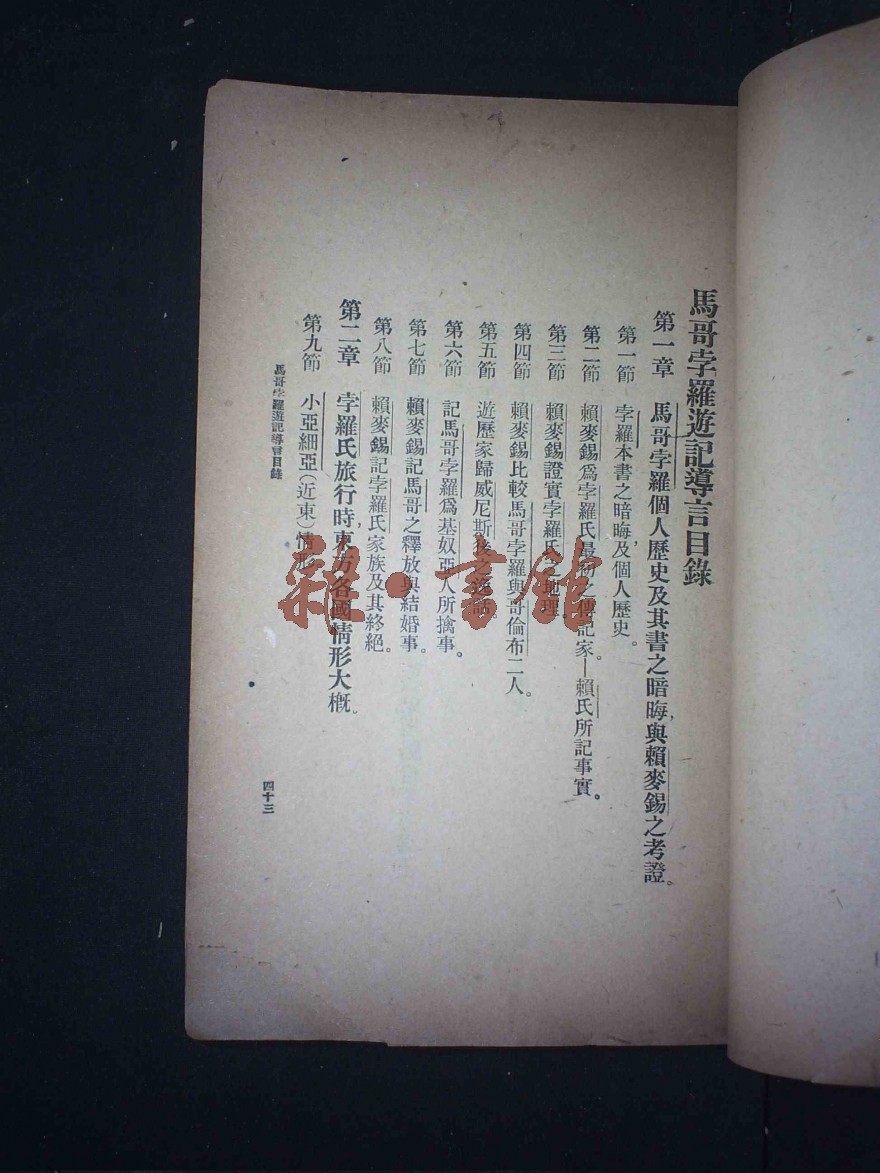 馬哥孛羅遊記導言目錄
第一章 馬哥孛羅個人歷史及其書之暗晦,與賴麥錫之考證。
第一節 孛羅本書之暗晦及個人歷史。
第二節 賴麥錫爲孛羅氏最初之傳記家—賴氏所記事實。
第三節 賴麥錫證實孛羅氏之地理。
第四節 賴麥錫比較馬哥孛羅與哥倫布二人。
第五節 遊歷家歸威尼斯後之逸話。
第六節 記馬哥孛羅爲基奴亞人所擒事。
第七節 賴麥錫記馬哥之釋放與結婚事。
第八節 賴麥錫記孛羅氏家族及其終絕。
第二章 孛羅氏旅行時,東方各國情形大概。
第九節 小亞細亞(近東)情形
馬哥孛羅遊記導言目錄
四十三
雜·書館